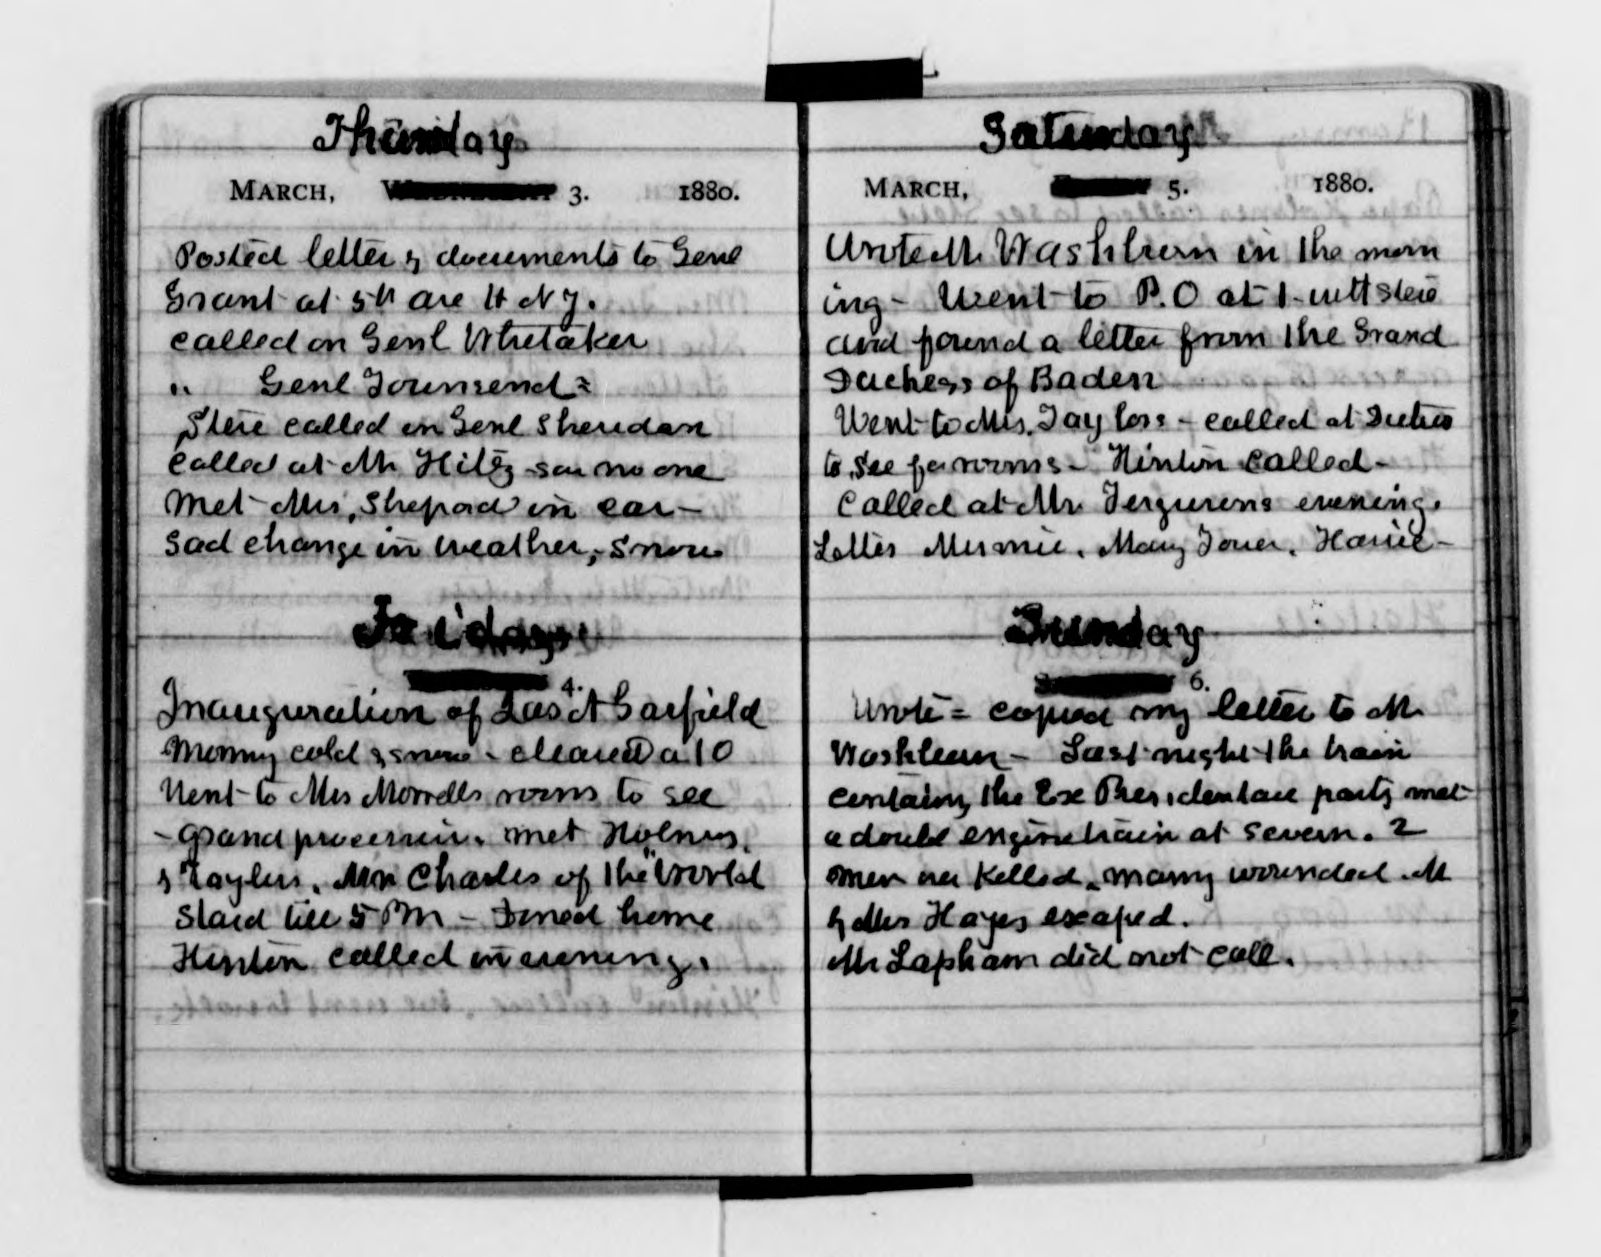 Thursday
MARCH, WEDNESDAY 3. 1880.
Posted letter & documents to Genl
Grant at 5th ave H N Y.
called on Genl Whitaker
" Genl Townsend =
Steie called on Genl Sheridan
called at Mr Hitz saw no one
Met Mrs, Shepard in car –
Sad change in weather, – Snow
Friday
4.
Inauguration of Jas A Garfield
Morning cold & snow – cleared a 10
Went to Mrs Morrells rooms to see
– Grand procession. met Holmes,
& Taylers. Mr Charles of the "World
Staid till 5 PM – Dined home
Hinton called in evening.
Saturday
MARCH, 5. 1880.
Wrote Mr Washburn in the morn
ing – Went to P.O at 1 – with Steie
and found a letter from the Grand
Duchess of Baden
Went to Mrs. Taylors – called at
to see for rooms – Hinton called –
Called at Mr Fergusons evening.
Letters Mermie. Mary Jones.
Sunday
6.
Wrote = copied my letter to Mr
Washburn – Last night the train
containing the Exe Presidentail party met
a double engine train at Severn. 2
men were Killed. many wounded. Mr
& Mrs Hayes escaped.
Mr Lapham did not call.